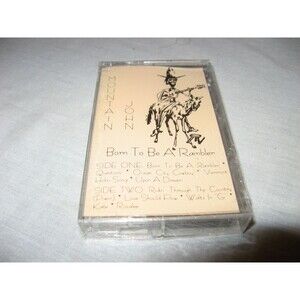 MOUNTAIN
JOHN
Born To Be A Rambler
SIDE ONE: Born To Be A Rambler •
Question • Ocean City Cowboy • Vermont
Song • Upon A Dream
SIDE TWO: Ridin' Through The Country
• Love Should Flow • Waltz In "G" •
Kate • Rosalee